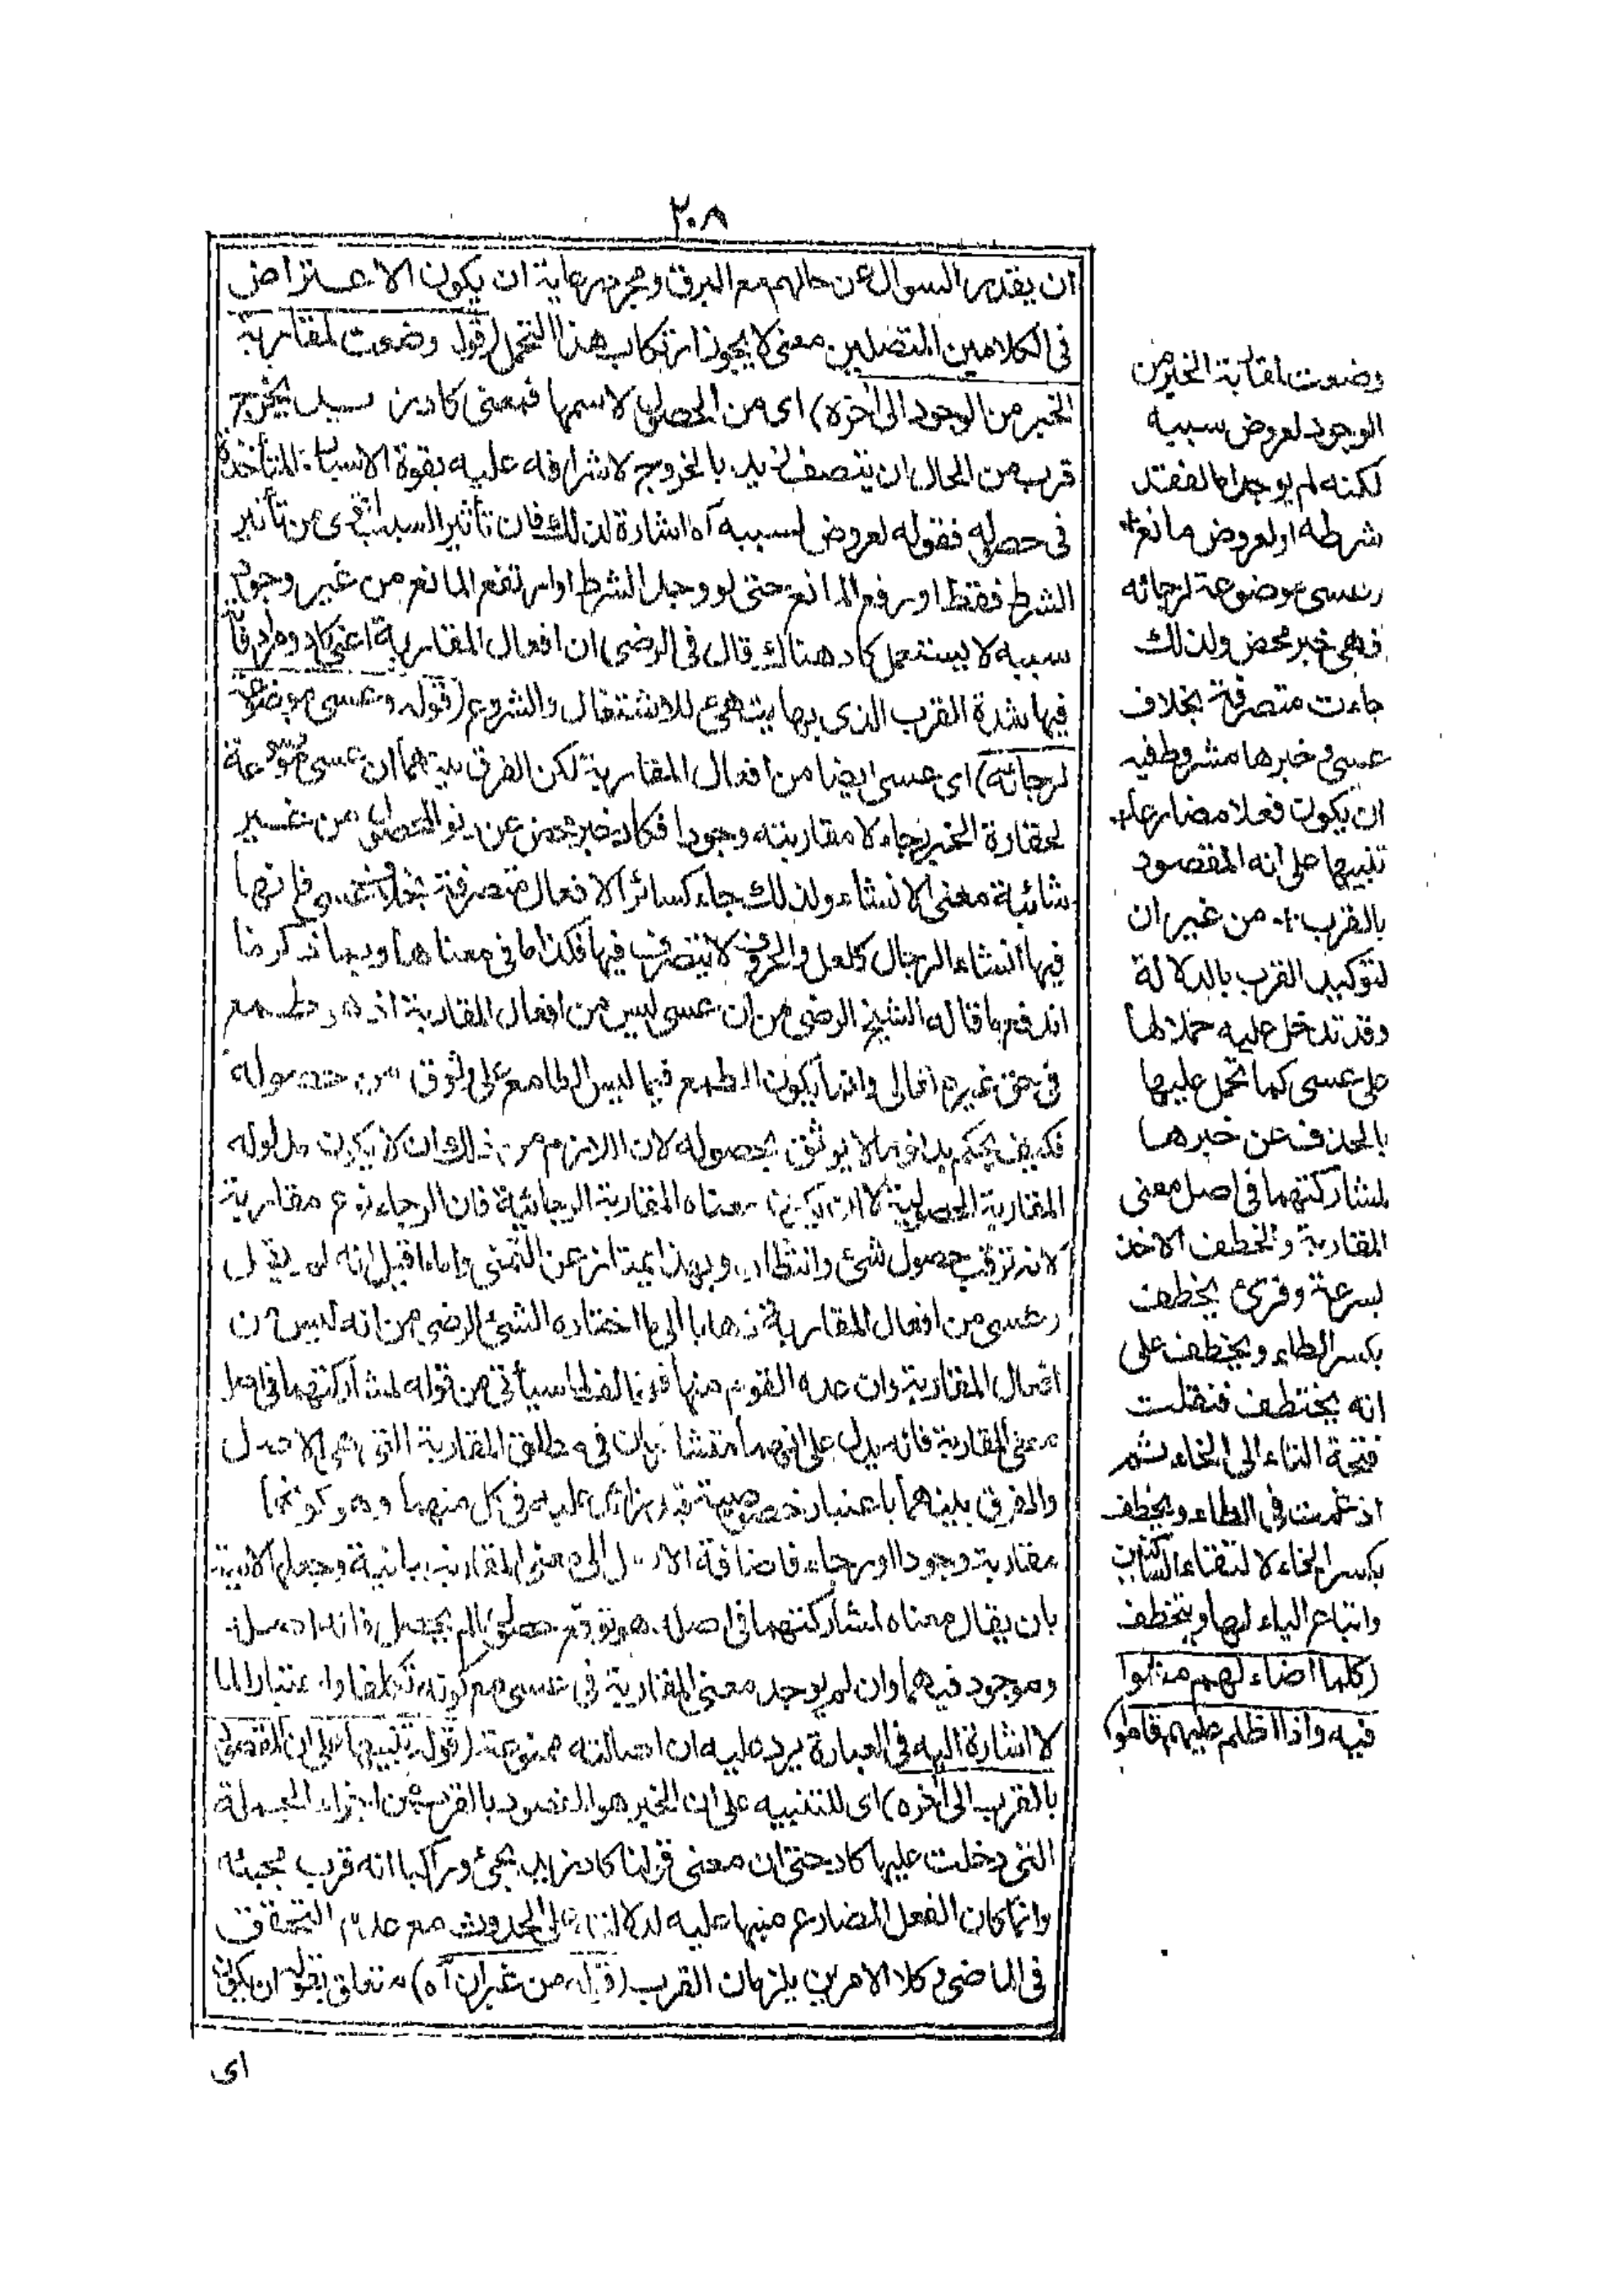 ٢٠٨
ان يقدر السوال عن حالهم مع البرق ومجرد رعاية ان يكون الاعتراض
فى الكلامين المتصلين معنى لا يجوز ارتكاب هذا التمحل (قوله وضعت لمقاربة
الخبر من الوجود الى اخره) اى من الحصول لاسمها فمعنى كاد زيد يخرج
قرب من الحال ان يتصف زيد بالخروج لاشرافه عليه بقوة الاسباب المتأخذة
فى حصوله فقوله لعروض لسببه آه اشارة لذلك فان تأثير السبب اقوى من تأثير
الشرط فقط او رفع المانع حتى لو وجد الشرط او ارتفع المانع من غير وجود
سببه لا يستعمل كاد هناك قال فى الرضى ان افعال المقاربة اعنى كاد ومرادفاً
فيها شدة القرب الذى بها يتهيئ للاشتغال والشروع (قوله وعسى موضوعة
لرجائه) اى عسى ايضا من افعال المقاربة لكن الفرق بينهما ان عسى موضوعة
لمقاربة الخبر رجاء لا مقاربته وجودا فكاد خبر محض عن دنو الحصول من غير
شائبة معنى الانشاء ولذلك جاء كسائر الافعال متصرفة بخلاف عسى فانها
فيها انشاء الرجال كلعل والحروف لا يتصرف فيها فكذا ما فى معناها وبما ذكرنا
اندفع ما قاله الشيخ الرضى من ان عسى ليس من افعال المقاربة اذ هو طمع
فى حق غيره تعالى وانما يكون الطمع فيما ليس الطامع على وثوق من حصوله
فكيف يحكم بدنو ما لا يوثق بحصوله لان اللازم من ذلك ان لا يكون مدلوله
المقاربة الحصولية لا ان يكون معناه المقاربة الرجائية فان الرجاء نوع مقاربة
لانه ترقب حصول شئ وانتظاره وبهذا يمتاز عن التمنى واما ما قيل انه لم يقل
وعسى من افعال المقاربة ذهابا الى ما اختاره الشيخ الرضى من انه ليس من
افعال المقاربة وان عده القوم منها فمخالف لما سيأتى من قوله لمشاركتهما فى اصل
معنى المقاربة فانه يدل على انهما متشاركان فى مطلق المقاربة التى هى الاصل
والفرق بينهما باعتبار خصوصية قيد زائد عليه فى كل منهما وهو كونها
مقاربة وجودا او رجاء فاضافة الاصل الى معنى المقاربة بيانية وجعلها لامية
بان يقال معناه لمشاركتهما فى اصله هو توقع حصول ما لم يحصل فانه اصل
وموجود فيهما وان لم يوجد معنى المقاربة فى عسى مع كونه تكلفا واعتبارا لما
لا اشارة اليه فى العبارة يرد عليه ان اصالته ممنوعة (قوله تنبيها على ان المقصود
بالقرب الى اخره) اى للتنبيه على ان الخبر هو المقصود بالقرب من اجزاء الجملة
التى دخلت عليها كاد حتى ان معنى قولنا كاد زيد يجئ وراكبا انه قرب مجيئه
وانما كان الفعل المضارع منبها عليه لدلالته على الحدوث مع عدم التحقق
فى الماضى وكلا الامرين يلزمان القرب (قوله من غير ان آه) متعلق بقوله ان يكون
اى
وضعت لمقاربة الخبر من
الوجود لعروض سببه
لكنه لم يوجد اما لفقد
شرطه او لعروض مانع
وعسى موضوعة لرجائه
فهى خبر محض ولذلك
جاءت متصرفة بخلاف
عسى وخبرها مشروط فيه
ان يكون فعلا مضارعا
تنبيها على انه المقصود
بالقرب من غير ان
لتوكيد القرب بالدلالة
وقد تدخل عليه حملا لها
على عسى كما تحمل عليها
بالحذف عن خبرها
لمشاركتهما فى اصل معنى
المقاربة والخطف الاخذ
بسرعة وقرئ يخطف
بكسر الطاء ويخطف على
انه يختطف فنقلت
فتحة التاء الى الخاء ثم
ادغمت فى الطاء ويخطف
بكسر الخاء لالتقاء الساكنين
واتباع الياء لها ويتخطف
(كلما اضاء لهم مشوا
فيه واذا اظلم عليهم قاموا)